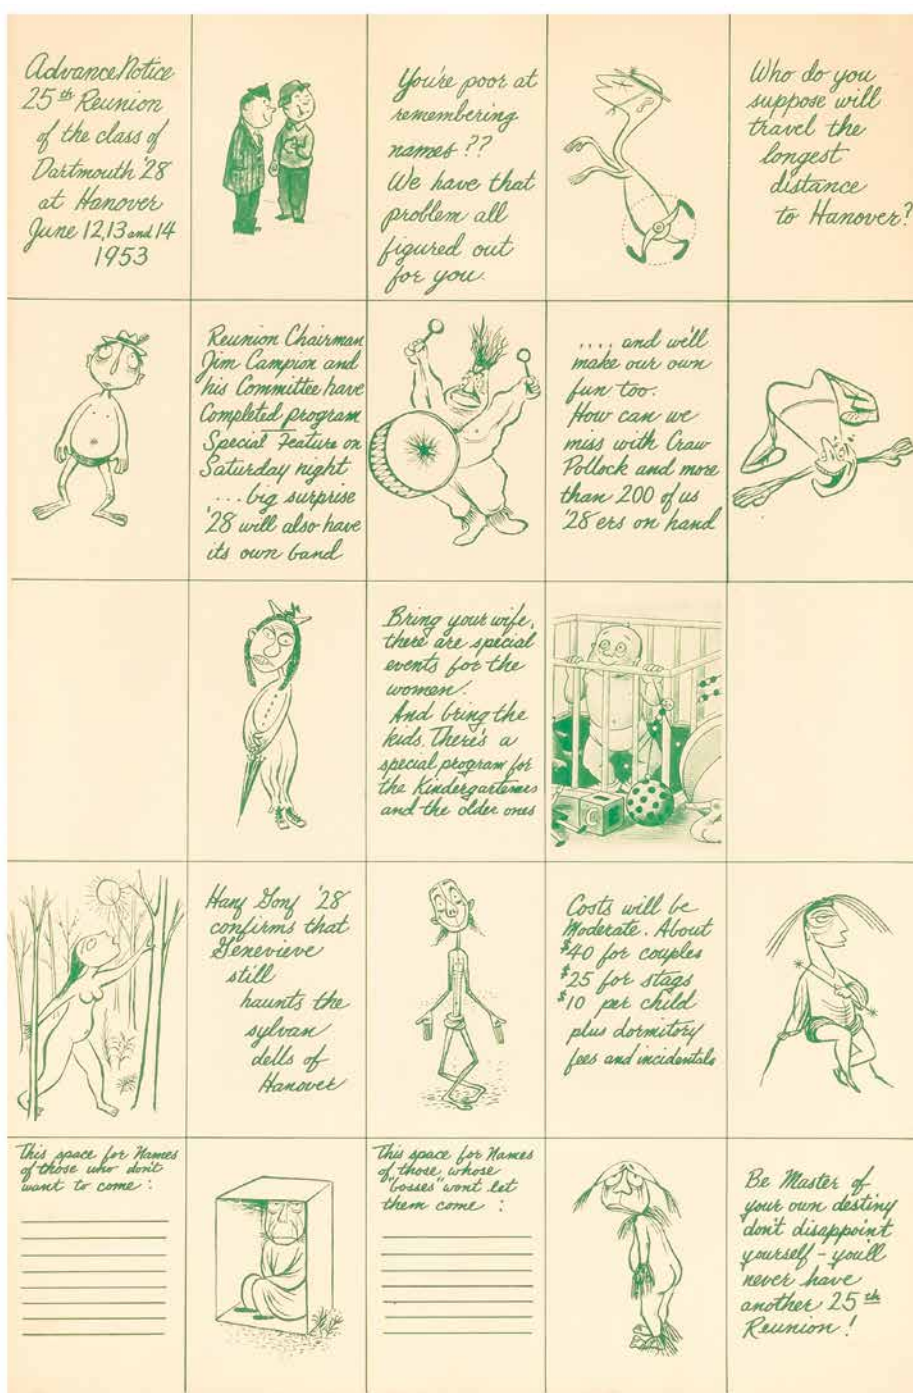 Advance Notice
25th Reunion
of the class of
Dartmouth '28
at Hanover
June 12, 13 and 14
1953
You're poor at
remembering
names??
We have that
problem all
figured out
for you.
Who do you
suppose will
travel the
longest
distance
to Hanover?
Reunion Chairman
Jim Campion and
his Committee have
Completed program
Special Feature on
Saturday night
... big surprise
'28 will also have
its own band
.... and we'll
make our own
fun too.
How can we
miss with Craw
Pollock and more
than 200 of us
'28 ers on hand
Bring your wife,
there are special
events for the
women.
And bring the
kids. There's a
special program for
the Kindergarteners
and the older ones
C
'28
confirms that
Genevieve
still
haunts the
sylvan
dells of
Hanover
Costs will be
Moderate. About
$40 for couples
$25 for stags
$10 per child
plus dormitory
fees and incidentals
This space for Names
of those who don't
want to come:
This space for Names
of those, whose
"bosses" wont let
them come :
Be Master of
your own destiny
don't disappoint
yourself - you'll
never have
another 25th
Reunion!